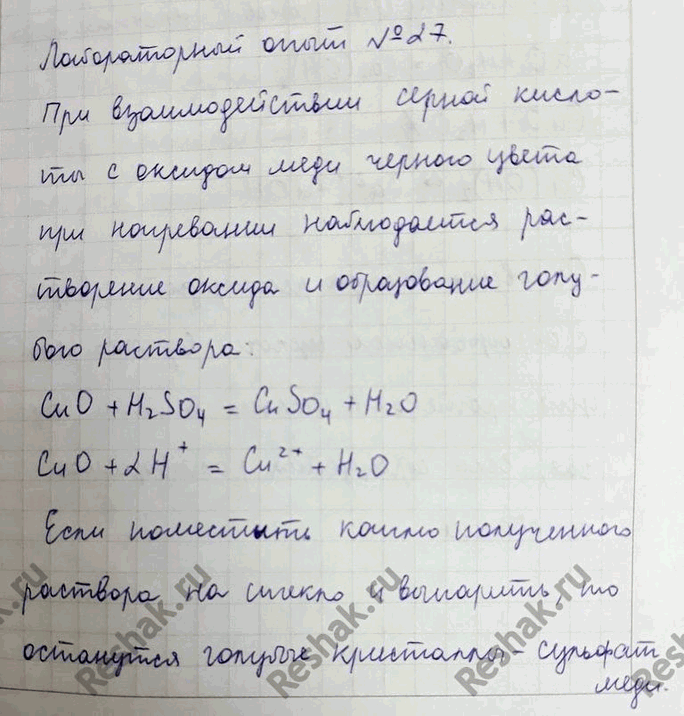 Лабораторный опыт №27.
При взаимодействии серной кисло-
ты с оксидом меди черного цвета
при нагревании наблюдается рас-
творение оксида и образование голу-
бого раствора:
CuO + H₂SO₄ = CuSO₄ + H₂O
CuO + 2H⁺ = Cu²⁺ + H₂O
Если поместить каплю полученного
раствора на стекло и выпарить, то
останутся голубые кристаллы - сульфат
меди.
Reshak.ru
Reshak.ru
Reshak.ru
Reshak.ru